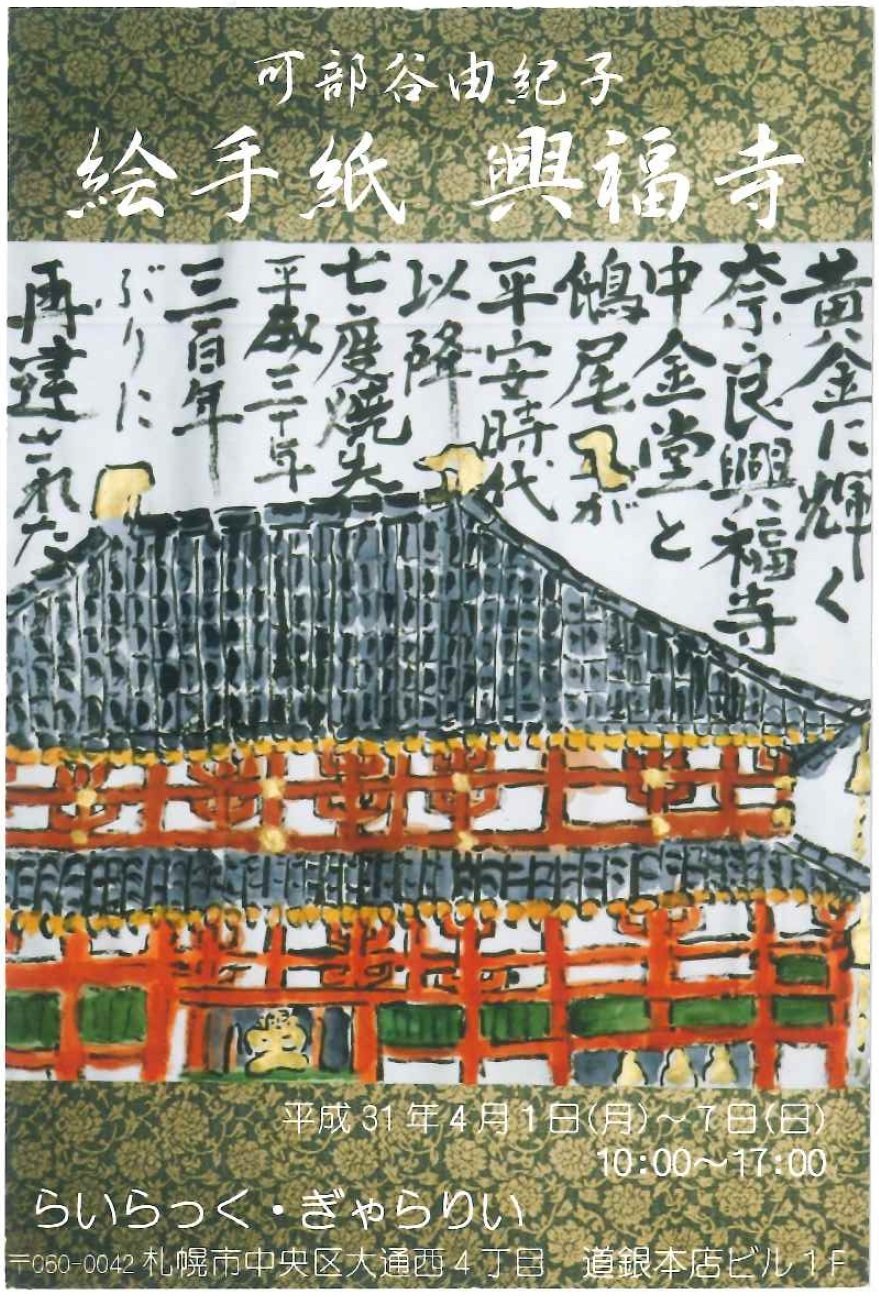 可部谷由紀子
絵手紙 興福寺
黄金に輝く
奈良興福寺
中金堂と
鴟尾が
平安時代
以降
七度焼失
平成三十年
三百年
ぶりに
再建された
平成31年4月1日(月)~7日(日)
10:00~17:00
らいらっく・ぎゃらりい
〒060-0042 札幌市中央区大通西4丁目 道銀本店ビル1F